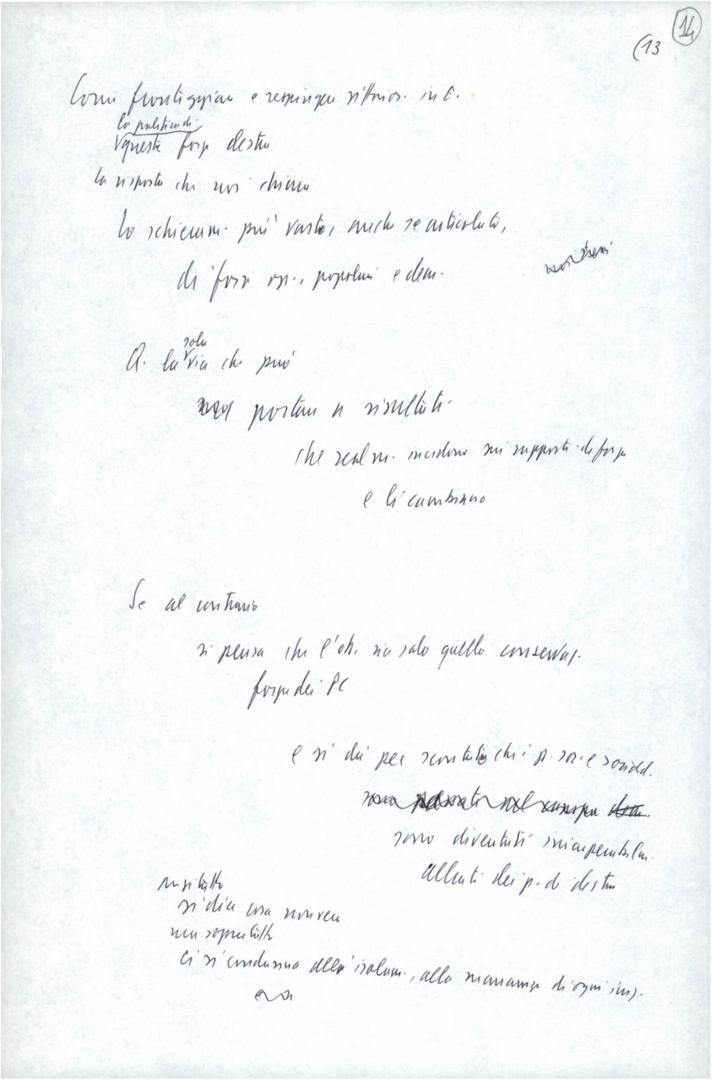 14
(13
Come fronteggiare e respingere vittorios. in E.
la politica di
queste forze destra
la risposta che noi diamo
Lo schieram. più vasto, anche se articolato,
di forze op., popolari e dem.
Q. la sola via che può
portare a risultati
che realm. incidono sui rapporti di forza
e li cambiano
Se al contrario
si pensa che l'ob. sia solo quello conservaz.
forze dei PC
e si dà per scontato che i p. soc. e sociald.
sono diventati irrecuperabilm.
alleati dei p. di destra
si dice cosa non vera
ma soprattutto
ci si condanna all'isolam., alla mancanza di ogni iniz.